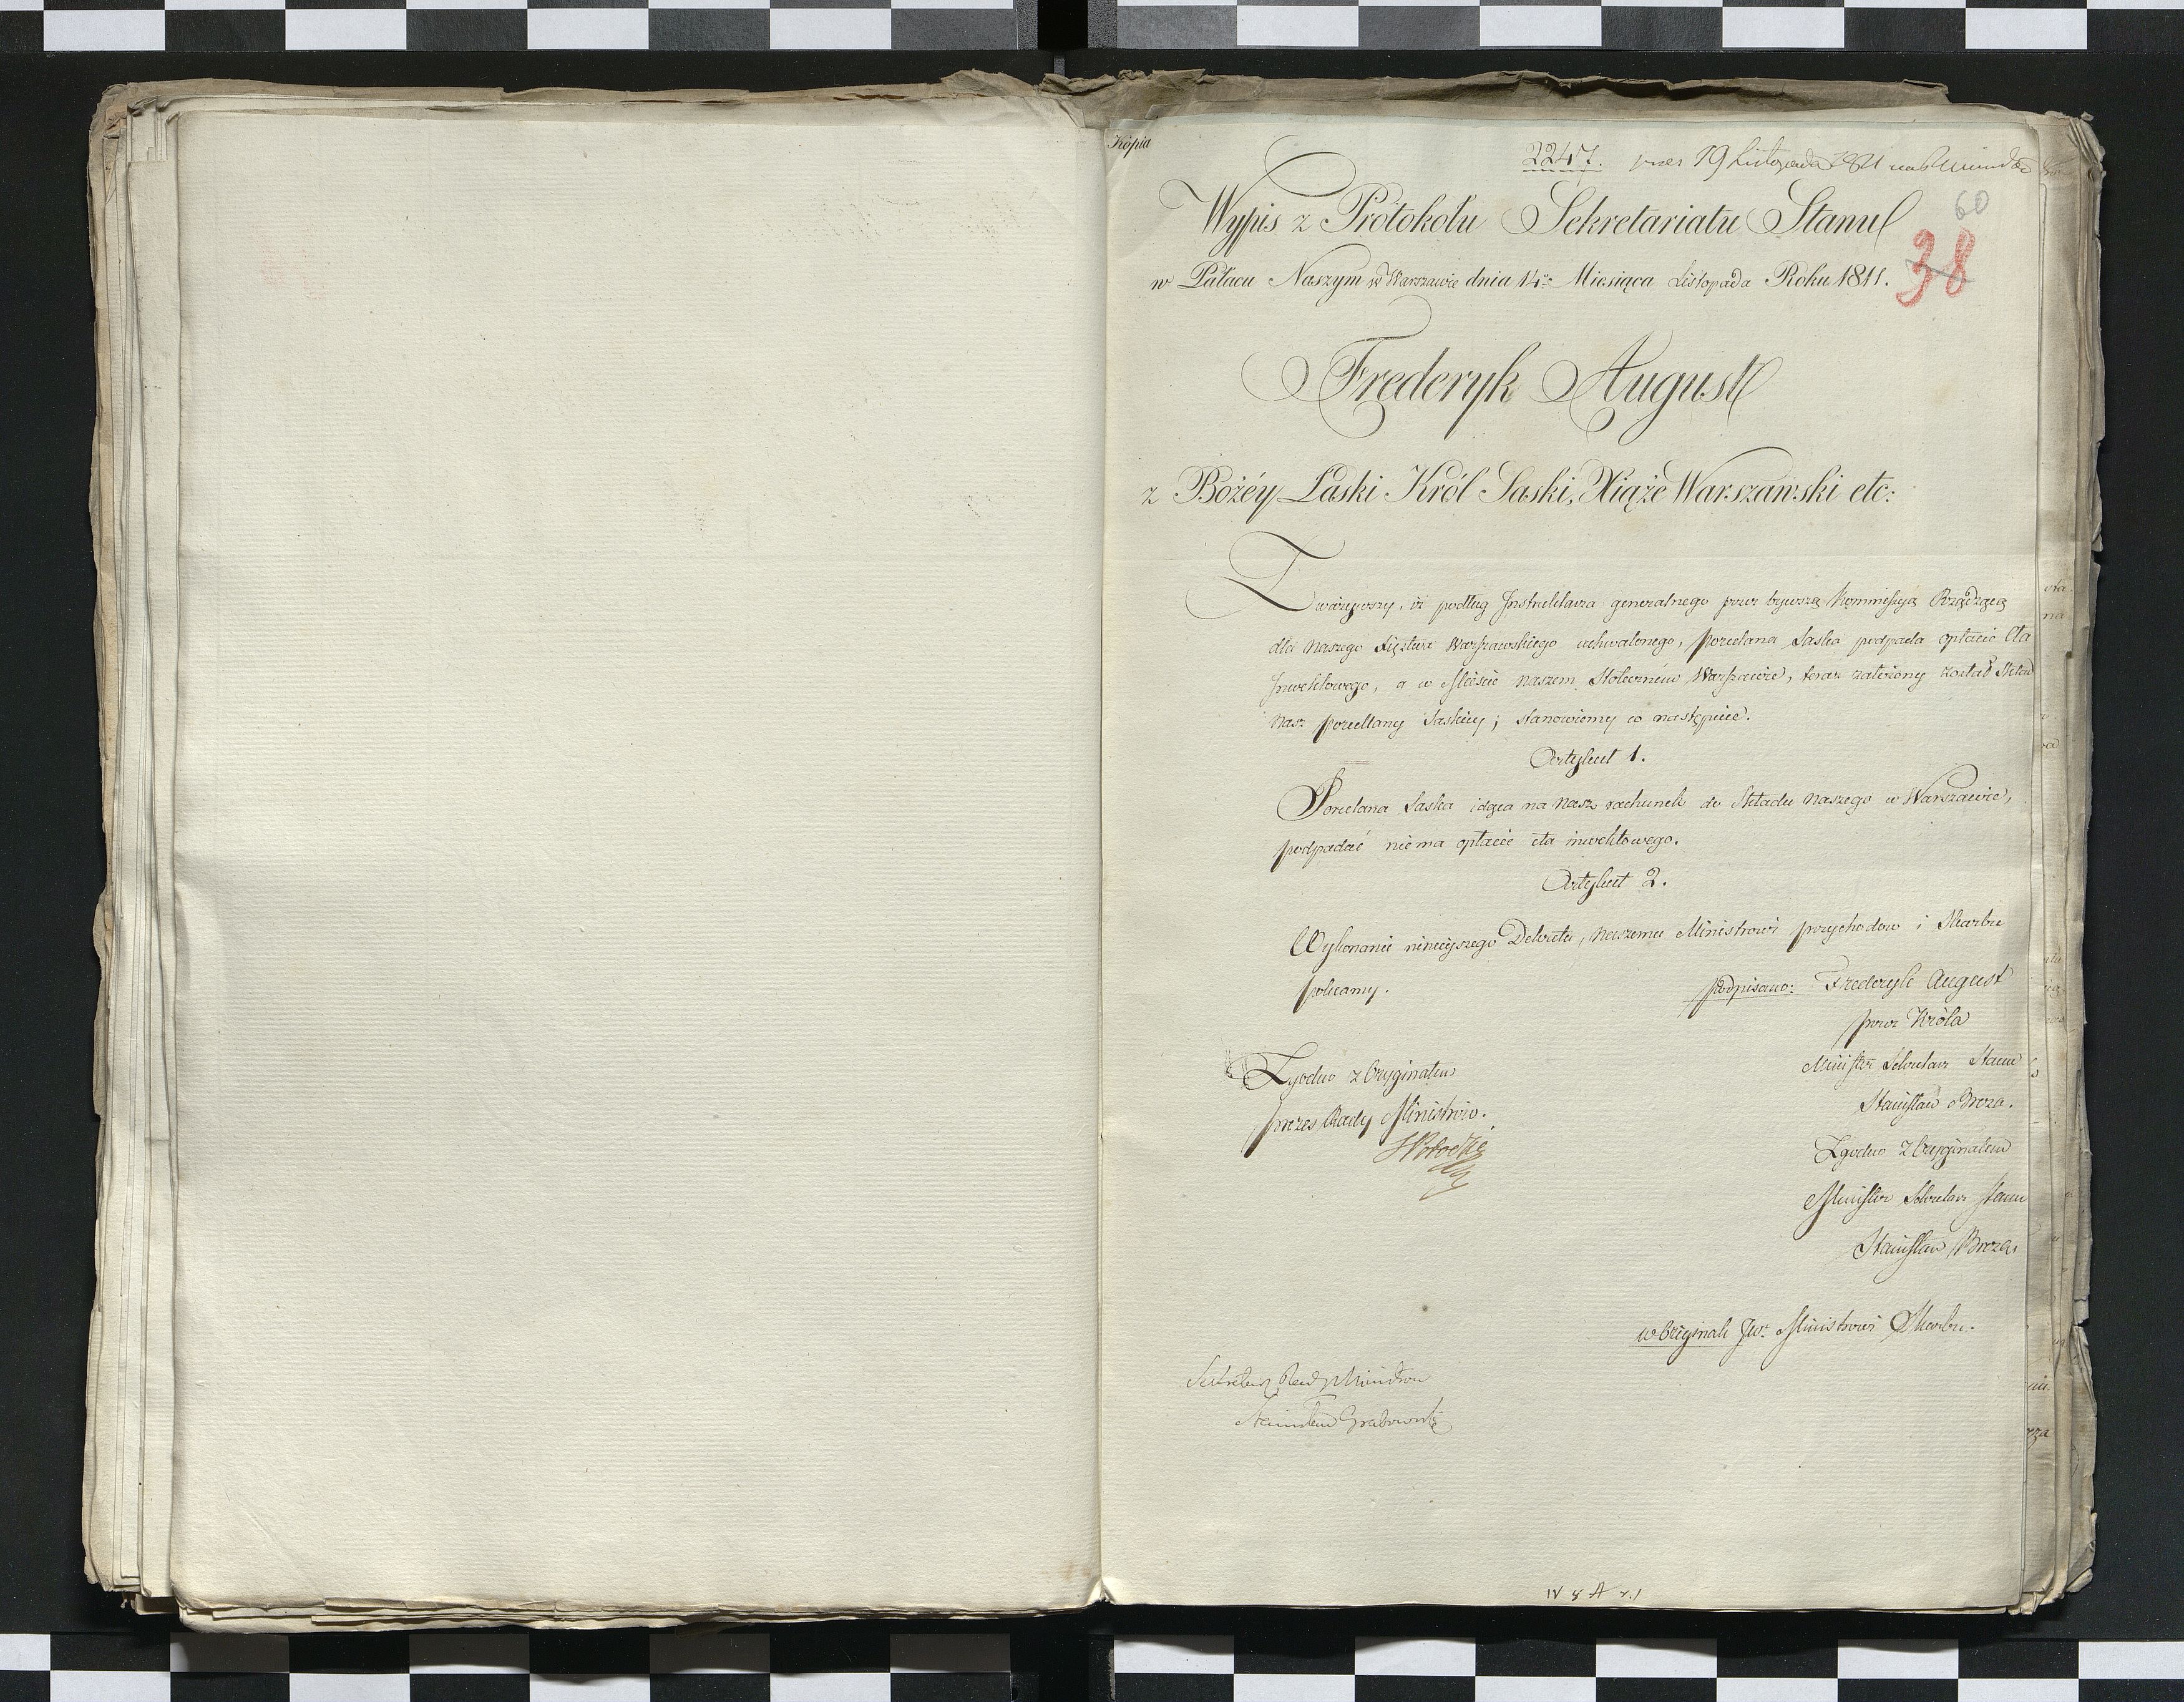 Kópia
2247. 19 Listopada 1811
60
Wypis z Protokołu Sekretariatu Stanu
38
w Pałacu Naszym w Warszawie dnia 14º Miesiąca Listopada Roku 1811.
Frederyk August
z Bożéy Łaski Król Saski, Xiąże Warszawski etc:
Zważywszy, iż podług Instruktarza generalnego przez bywszą Kommissyą Rządzącą
dla naszego Xięztwa Warszawskiego uchwalonego, porcelana Saska podpada opłacie Cła
Inwektowego, a w Mieście naszem Stołeczném Warszawie, teraz założony został Skład
nasz porcellany Saskiey; stanowiemy co następuie.
Artykuł 1.
Porcelana Saska idąca na nasz rachunek do Składu naszego w Warszawie,
podpadać nie ma opłacie cła inwektowego.
Artykuł 2.
Wykonanie ninieyszego Dekretu, naszemu Ministrowi przychodow i Skarbu
polecamy.
podpisano: Frederyk August
przez Króla
Minister Sekretarz Stanu
Stanisław Breza.
Zgodno z Oryginałem
Prezes Rady Ministrów.
SPotocki
Zgodno z Oryginałem
Minister Sekretarz Stanu
Stanisław Breza
w Originale JW. Ministrowi Skarbu.
Sekretarz Rady Ministrow
Stanisław Grabowski